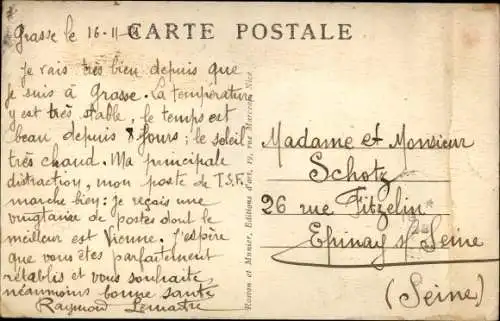 Grasse le 16-11-
CARTE POSTALE
Je vais très bien depuis que
je suis à Grasse. La température
y est très stable, le temps est
beau depuis 8 jours ; le soleil
très chaud. Ma principale
distraction, mon poste de T.S.F.
marche bien : je reçois une
vingtaine de postes dont le
meilleur est Vienne. J'espère
que vous êtes parfaitement
rétablis et vous souhaite
néanmoins bonne santé
Raymond Lemaitre
Rostan et Munier, Editions d'art, 19, rue Marceau, Nice
Madame et Monsieur
Schotz
26 rue Fitzelin
Epinay s/ Seine
(Seine)